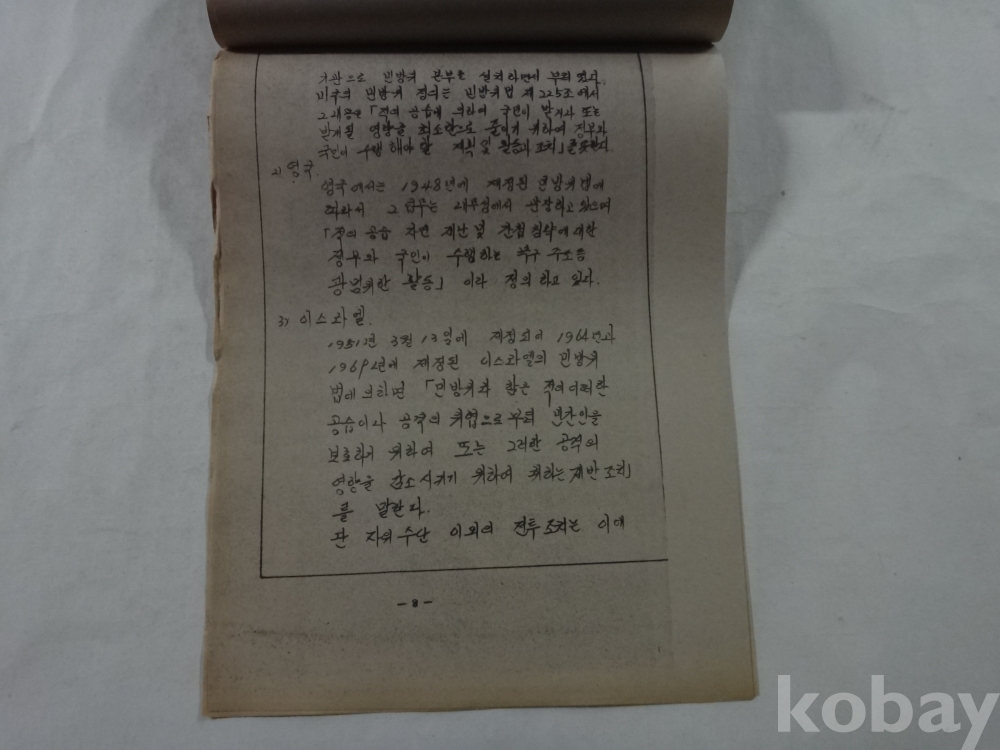 기관으로 민방위 본부를 설치하면서 부터 였다.
미국의 민방위 정의는 민방위법 제225조에서
「적의 공습에 의하여 국민이 받거나 또는
받게될 영향을 최소한으로 줄이기 위하여 정부와
국민이 수행 해야 할 계획 및 활동과 조치」를 뜻한다.
2) 영국.
영국에서는 1948년에 제정된 민방위법에
따라서 그 업무는 내무성에서 관장하고 있으며
「적의 공습 자연 재난 및 간접 침략에 대한
정부와 국민이 수행하는 구조등
광범위한 활동」 이라 정의 하고 있다.
3) 이스라엘.
1951년 3월 13일에 제정되어 1964년과
1969년에 재정된 이스라엘의 민방위
법에 의하면 「민방위라 함은 적의 여하한
공습이나 공격의 위협으로부터 민간인을
보호하기 위하여 또는 그러한 공격의
영향을 감소시키기 위하여 취하는 제반조치」
를 말한다.
단 자위수단 이외의 전투조치는 이에
-8-
kobay